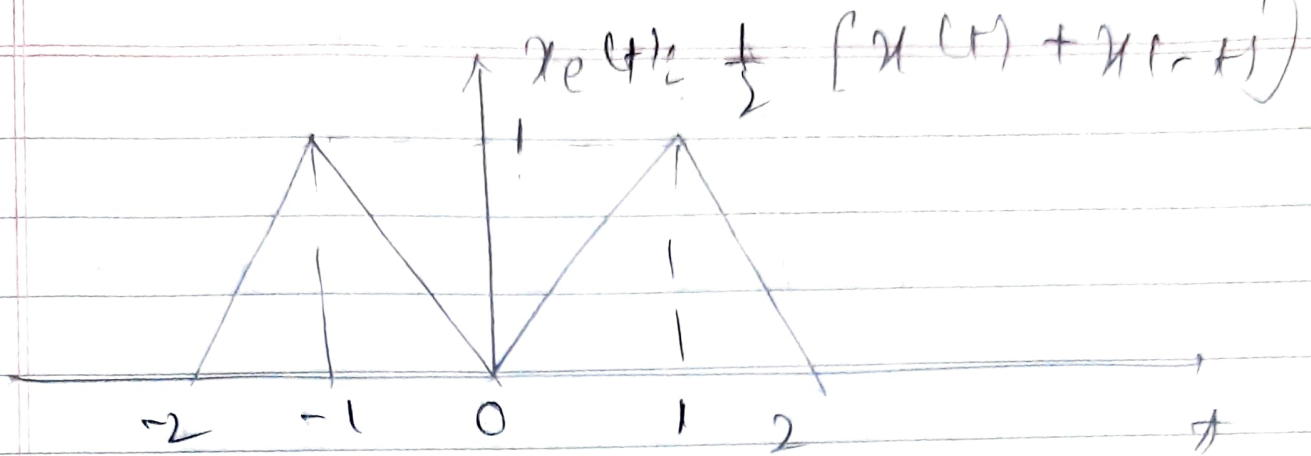 xe(t) = 1/2 [x(t) + x(-t)]
1
-2 -1 0 1 2 t